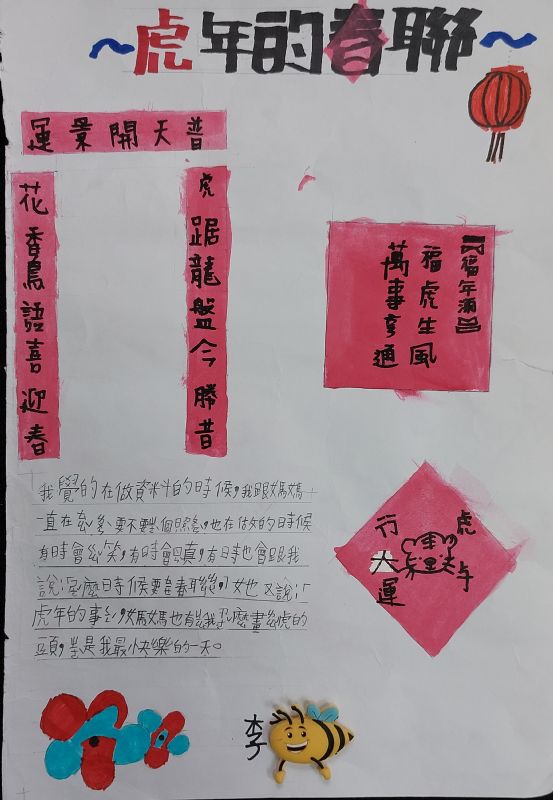 ~虎年的春聯~
普天開景運
虎踞龍盤今勝昔
花香鳥語喜迎春
福年滿
福虎生風
萬事亨通
虎年
行大運
我覺的在做資料的時候，我跟媽媽
一直在
個照，也在做的時候
有時會笑，有時會認真，有時也會跟我
說
麼時候要
春聯，
她又說
虎年的事，媽媽也有
我
麼畫
虎的
頭，
是我最快樂的一天。
李